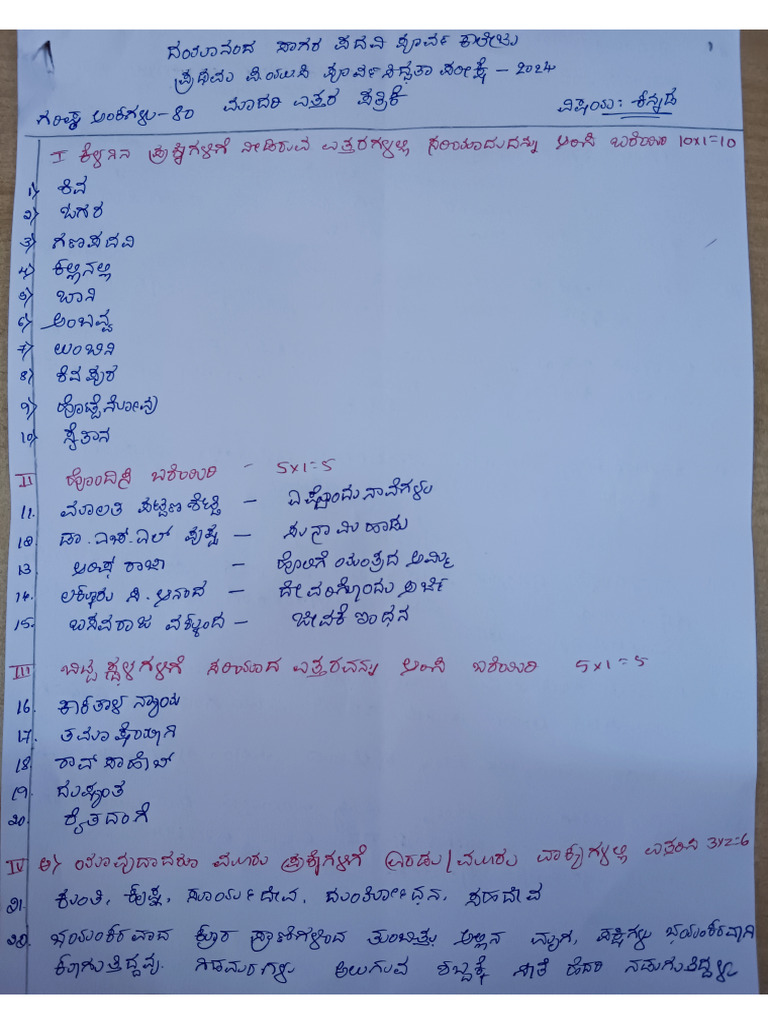 ದಯಾನಂದ ಸಾಗರ ಪದವಿ ಪೂರ್ವ ಕಾಲೇಜು
ಪ್ರಥಮ ಪಿ.ಯು.ಸಿ ಪೂರ್ವ ಸಿದ್ಧತಾ ಪರೀಕ್ಷೆ - 2024
ಗರಿಷ್ಠ ಅಂಕಗಳು - 80 ಮಾದರಿ ಉತ್ತರ ಪತ್ರಿಕೆ ವಿಷಯ: ಕನ್ನಡ
I ಕೆಳಗಿನ ಪ್ರಶ್ನೆಗಳಿಗೆ ನೀಡಿರುವ ಉತ್ತರಗಳಲ್ಲಿ ಸರಿಯಾದುದನ್ನು ಆರಿಸಿ ಬರೆಯಿರಿ 10x1=10
1) ಶಿವ
2) ಖಗರ
3) ಗಣಪದವಿ
4) ಕಲ್ಲಿನಲ್ಲಿ
5) ಬಾನಿ
6) ಅಂಬವ್ವ
7) ಲುಂಬಿನಿ
8) ಶಿವಪುರ
9) ಹೊಟ್ಟೆನೋವು
10) ಸೈತಾನ
II ಹೊಂದಿಸಿ ಬರೆಯಿರಿ - 5x1=5
11. ಮಾಲತಿ ಪಟ್ಟಣಶೆಟ್ಟಿ - ಎಷ್ಟೊಂದು ನಾವೆಗಳು
12. ಡಾ. ಎಚ್. ಎಲ್ ಪುಷ್ಪ - ಸುನಾಮಿ ಹಾಡು
13 - ಹೊಲಿಗೆ ಯಂತ್ರದ ಅಮ್ಮಿ
14. ಲಕ್ಕೂರು ಸಿ. ಆನಂದ - ದೇವರಿಗೊಂದು ಅರ್ಜಿ
15. ಬಸವರಾಜ ವಕ್ಕುಂದ - ಜೀವಕೆ ಇಂಧನ
III ಬಿಟ್ಟ ಸ್ಥಳಗಳಿಗೆ ಸರಿಯಾದ ಉತ್ತರವನ್ನು ಆರಿಸಿ ಬರೆಯಿರಿ 5x1=5
16. ಕಾಕತಾಳ ನ್ಯಾಯ
17.
18. ರಾವ್ ಸಾಹೇಬ್
19. ದುಷ್ಯಂತ
20. ಕೈತದಂಗೆ
IV ಅ) ಯಾವುದಾದರೂ ಮೂರು ಪ್ರಶ್ನೆಗಳಿಗೆ ಎರಡು/ಮೂರು ವಾಕ್ಯಗಳಲ್ಲಿ ಉತ್ತರಿಸಿ 3x2=6
21. ಕುಂತಿ, ಕೃಷ್ಣ, ಸೂರ್ಯದೇವ, ದುರ್ಯೋಧನ, ಸಹದೇವ
22. ಭಯಂಕರವಾದ ಕ್ರೂರ ಪ್ರಾಣಿಗಳಿಂದ ತುಂಬಿತ್ತು ಅಲ್ಲಿನ ಮೃಗ, ಪಕ್ಷಿಗಳು ಭಯಂಕರವಾಗಿ
ಕೂಗುತ್ತಿದ್ದವು. ಗಿಡಮರಗಳು ಅಲುಗುವ ಶಬ್ದಕ್ಕೆ ಸೀತೆ ಹೆದರಿ ನಡುಗುತ್ತಿದ್ದಳು